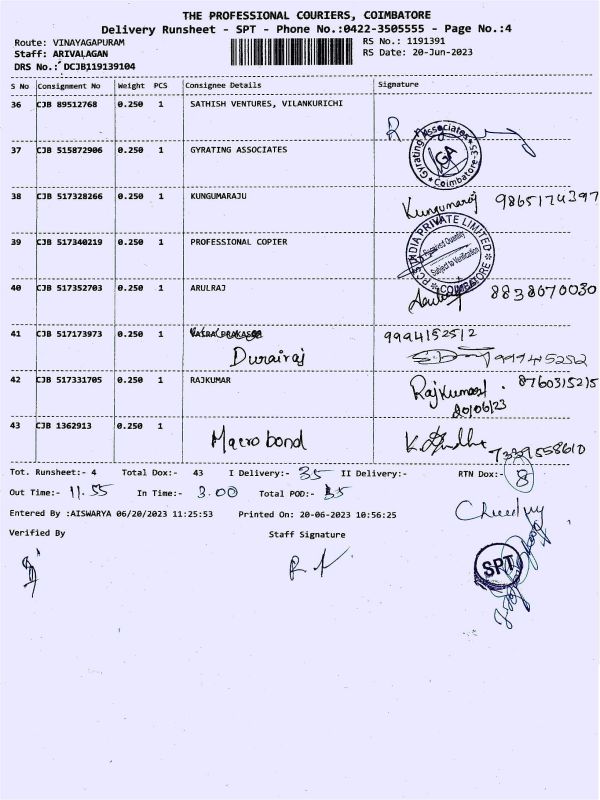 THE PROFESSIONAL COURIERS, COIMBATORE
Delivery Runsheet - SPT - Phone No.:0422-3505555 - Page No.:4
Route: VINAYAGAPURAM
RS No.: 1191391
Staff: ARIVALAGAN
RS Date: 20-Jun-2023
DRS No.: DCJB119139104
S No Consignment No Weight PCS Consignee Details Signature
36 CJB 89512768 0.250 1 SATHISH VENTURES, VILANKURICHI
37 CJB 515872906 0.250 1 GYRATING ASSOCIATES
Gyrating Associates
GA
Coimbatore-35
38 CJB 517328266 0.250 1 KUNGUMARAJU Kungumaraj 9865174397
39 CJB 517340219 0.250 1 PROFESSIONAL COPIER
INDIA PRIVATE LIMITED
Received Quantity
Subject to Verification
COIMBATORE
40 CJB 517352703 0.250 1 ARULRAJ 8838070030
41 CJB 517173973 0.250 1 9994152512
Durairaj
42 CJB 517331705 0.250 1 RAJKUMAR Rajkumar 8760315215
20/06/23
43 CJB 1362913 0.250 1 Macro bond 7339558610
Tot. Runsheet:- 4 Total Dox:- 43 I Delivery:- 35 II Delivery:- RTN Dox:- 8
Out Time:- 11.55 In Time:- 3.00 Total POD:- 35
Entered By :AISWARYA 06/20/2023 11:25:53 Printed On: 20-06-2023 10:56:25
Verified By Staff Signature
SPT